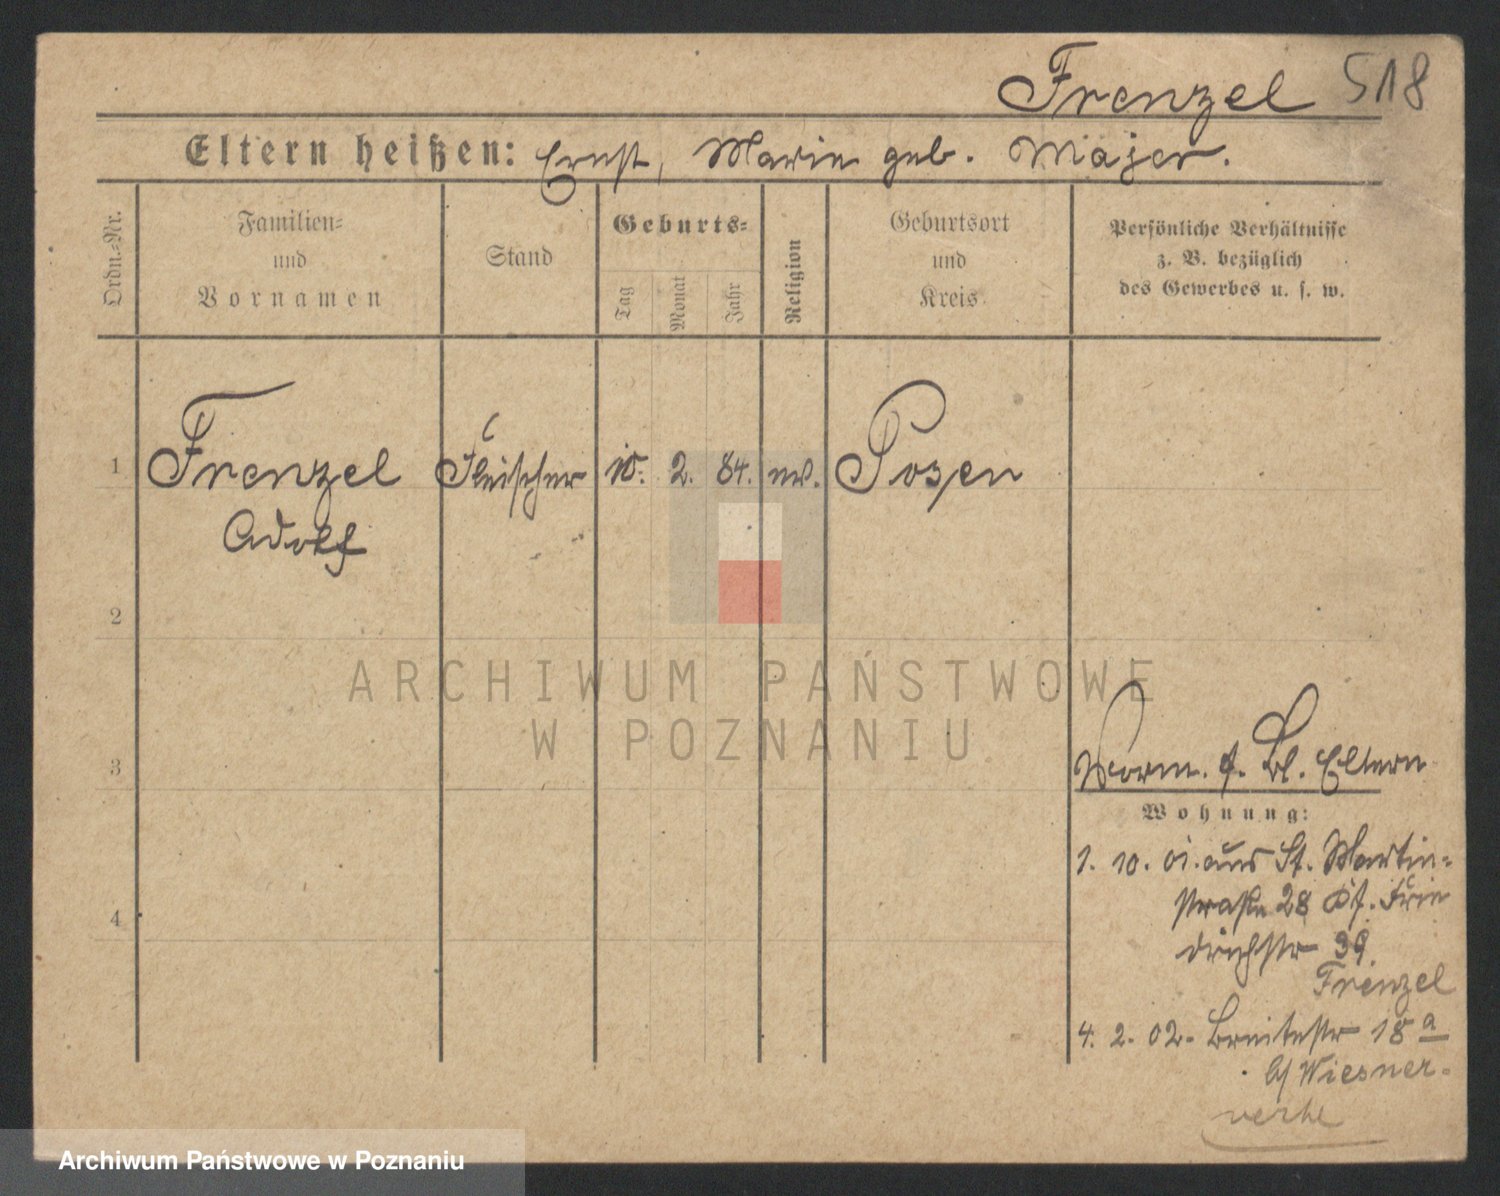 Frenzel 518
Eltern heißen: Ernst, Marie geb. Majer.
Ordn.-Nr.
Familien-
und
Vornamen
Stand
Geburts-
Tag
Monat
Jahr
Religion
Geburtsort
und
Kreis
Persönliche Verhältnisse
z. B. bezüglich
des Gewerbes u. s. w.
1 Frenzel Fleischer 10. 2. 84. ev. Posen
Adolf
2
3
4
ARCHIWUM PAŃSTWOWE
W POZNANIU
Vorm. Bl. Eltern
Wohnung:
1. 10. 01. aus St. Martin-
straße 28 Frie
drichstr 39
Frenzel
4. 2. 02. Breitestr 18 a
b/ Wiesner.
Archiwum Państwowe w Poznaniu